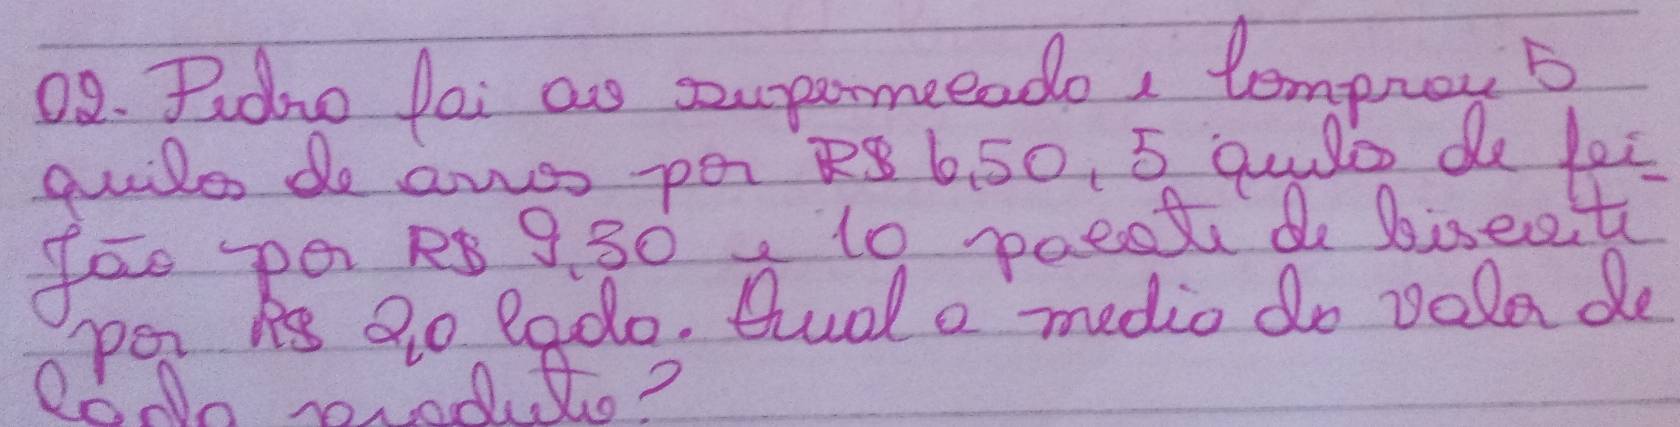 02. Pedro foi ao supermecado e comprou 5
quilos de arros por R$ 6,50, 5 quilo de fei-
jão por R$ 9,30 e 10 pacote de biscoite
por R$ 2,0 cada. Qual a media do valor de
cada produto?